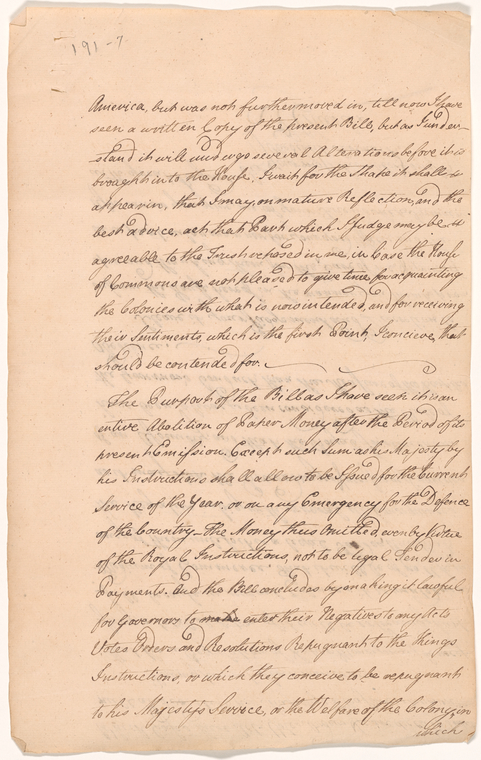 191-7
America, but was not further moved in, till now I have
seen a written Copy of the present Bill, but as I under-
stand it will undergo several Alterations before it is
brought into the House. I wait for the Shape it shall
appear in, that I may, on mature Reflection, and the
best advice, act that Part which I judge may be
agreeable to the Trust reposed in me, in Case the House
of Commons are not pleased to give time for acquainting
the Colonies with what is now intended, and for receiving
their Sentiments, which is the first Point, I concieve, that
should be contended for.
The Purport of the Bill as I have seen it is an
entire Abolition of Paper Money after the Period of its
present Emission. Except such Sum as his Majesty by
his Instructions shall allow to be Issued for the Current
Service of the Year, or on any Emergency for the Defence
of the Country. The Money thus Omitted, even by Virtue
of the Royal Instructions, not to be legal Tender in
Payments. And the Bill concludes by making it lawful
for Governors to enter their Negatives to any Acts
Votes Orders and Resolutions Repugnant to the Kings
Instructions, or which they conceive to be repugnant
to his Majestys Service, or the Welfare of the Colony, in
which